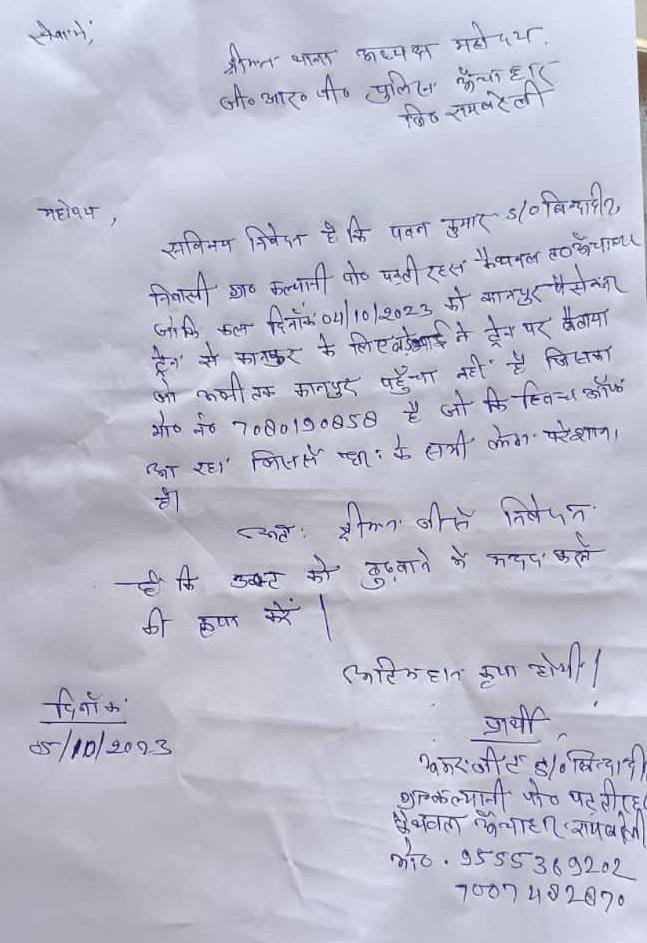 सेवामें,
श्रीमान थाना अध्यक्ष महोदय.
जी० आर० पी० पुलिस ऊँचाहार
जि० रायबरेली
महोदय,
सविनय निवेदन है कि पवन कुमार S/o बिन्दादीन,
निवासी ग्रा० कल्यानी पो० पट्टी रहस कैथवल ऊँचाहार
जोकि कल दिनाँक 04/10/2023 को कानपुर पैसेन्जर
ट्रेन से कानपुर के लिए बडे भाई ने ट्रेन पर बैठाया
जो अभी तक कानपुर पहुँचा नहीं है जिसका
मो० नं० 7080190858 है जो कि स्विच ऑफ
आ रहा जिससे घर के सभी लोग परेशान
है।
अतः श्रीमान जी से निवेदन
है कि उक्त को ढुढ़वाने में मदद करने
की कृपा करें।
अति महान कृपा होगी!
दिनाँक
05/10/2023
प्रार्थी
अमरजीत S/o बिन्दादी
ग्रा० कल्यानी पो० पट्टी रह
कैथवल ऊँचाहार रायबरेली
मो० . 9555369202
7007482870